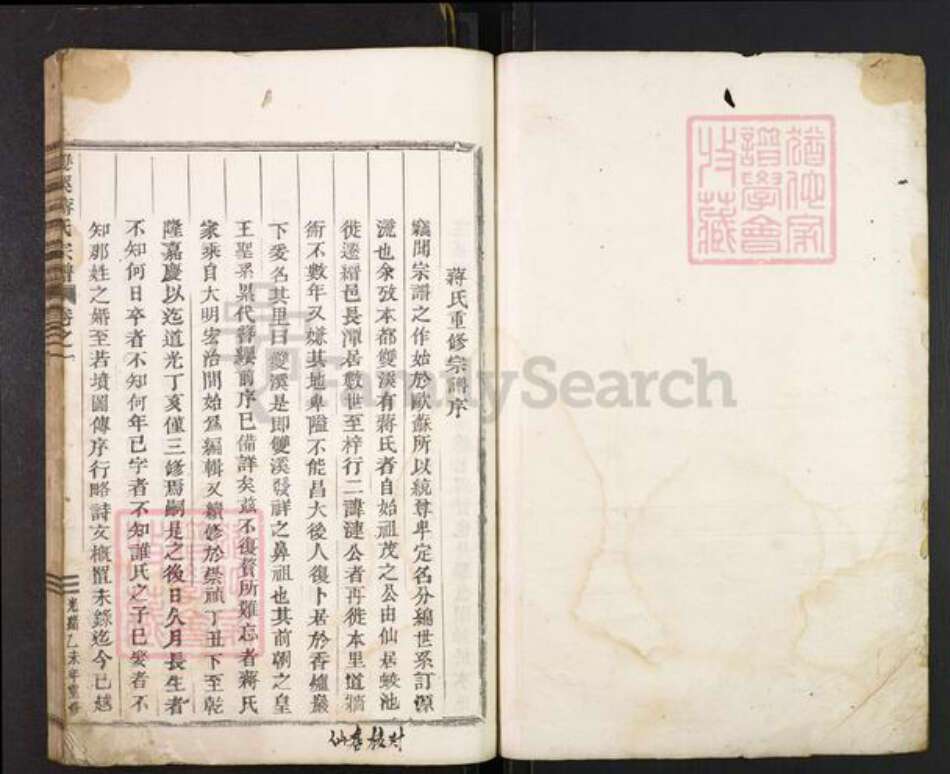 猶他家
譜學會
收藏
蔣氏重修宗譜序
竊聞宗譜之作始於歐蘇所以統尊卑定名分綿世系訂源
流也余攷本都雙溪有蔣氏者自始祖茂之公由仙居蛟池
徙遷縉邑長潭居數世至梓行二諱漣公者再徙本里道牆
術不數年又嫌其地卑隘不能昌大後人復卜居於香爐巖
下爰名其里曰雙溪是即雙溪發祥之鼻祖也其前朝之皇
王聖系累代簪纓前序已備詳矣茲不復贅所難忘者蔣氏
家乘自大明宏治間始爲編輯又續修於崇禎丁丑下至乾
隆嘉慶以迄道光丁亥僅三修焉嗣是之後日久月長生者
不知何日卒者不知何年已字者不知誰氏之子已娶者不
知那姓之婚至若墳圖傳序行略詩文概置未錄迄今已越
雙溪蔣氏宗譜 卷之一
光緒乙未年重修
仙居校对
FamilySearch